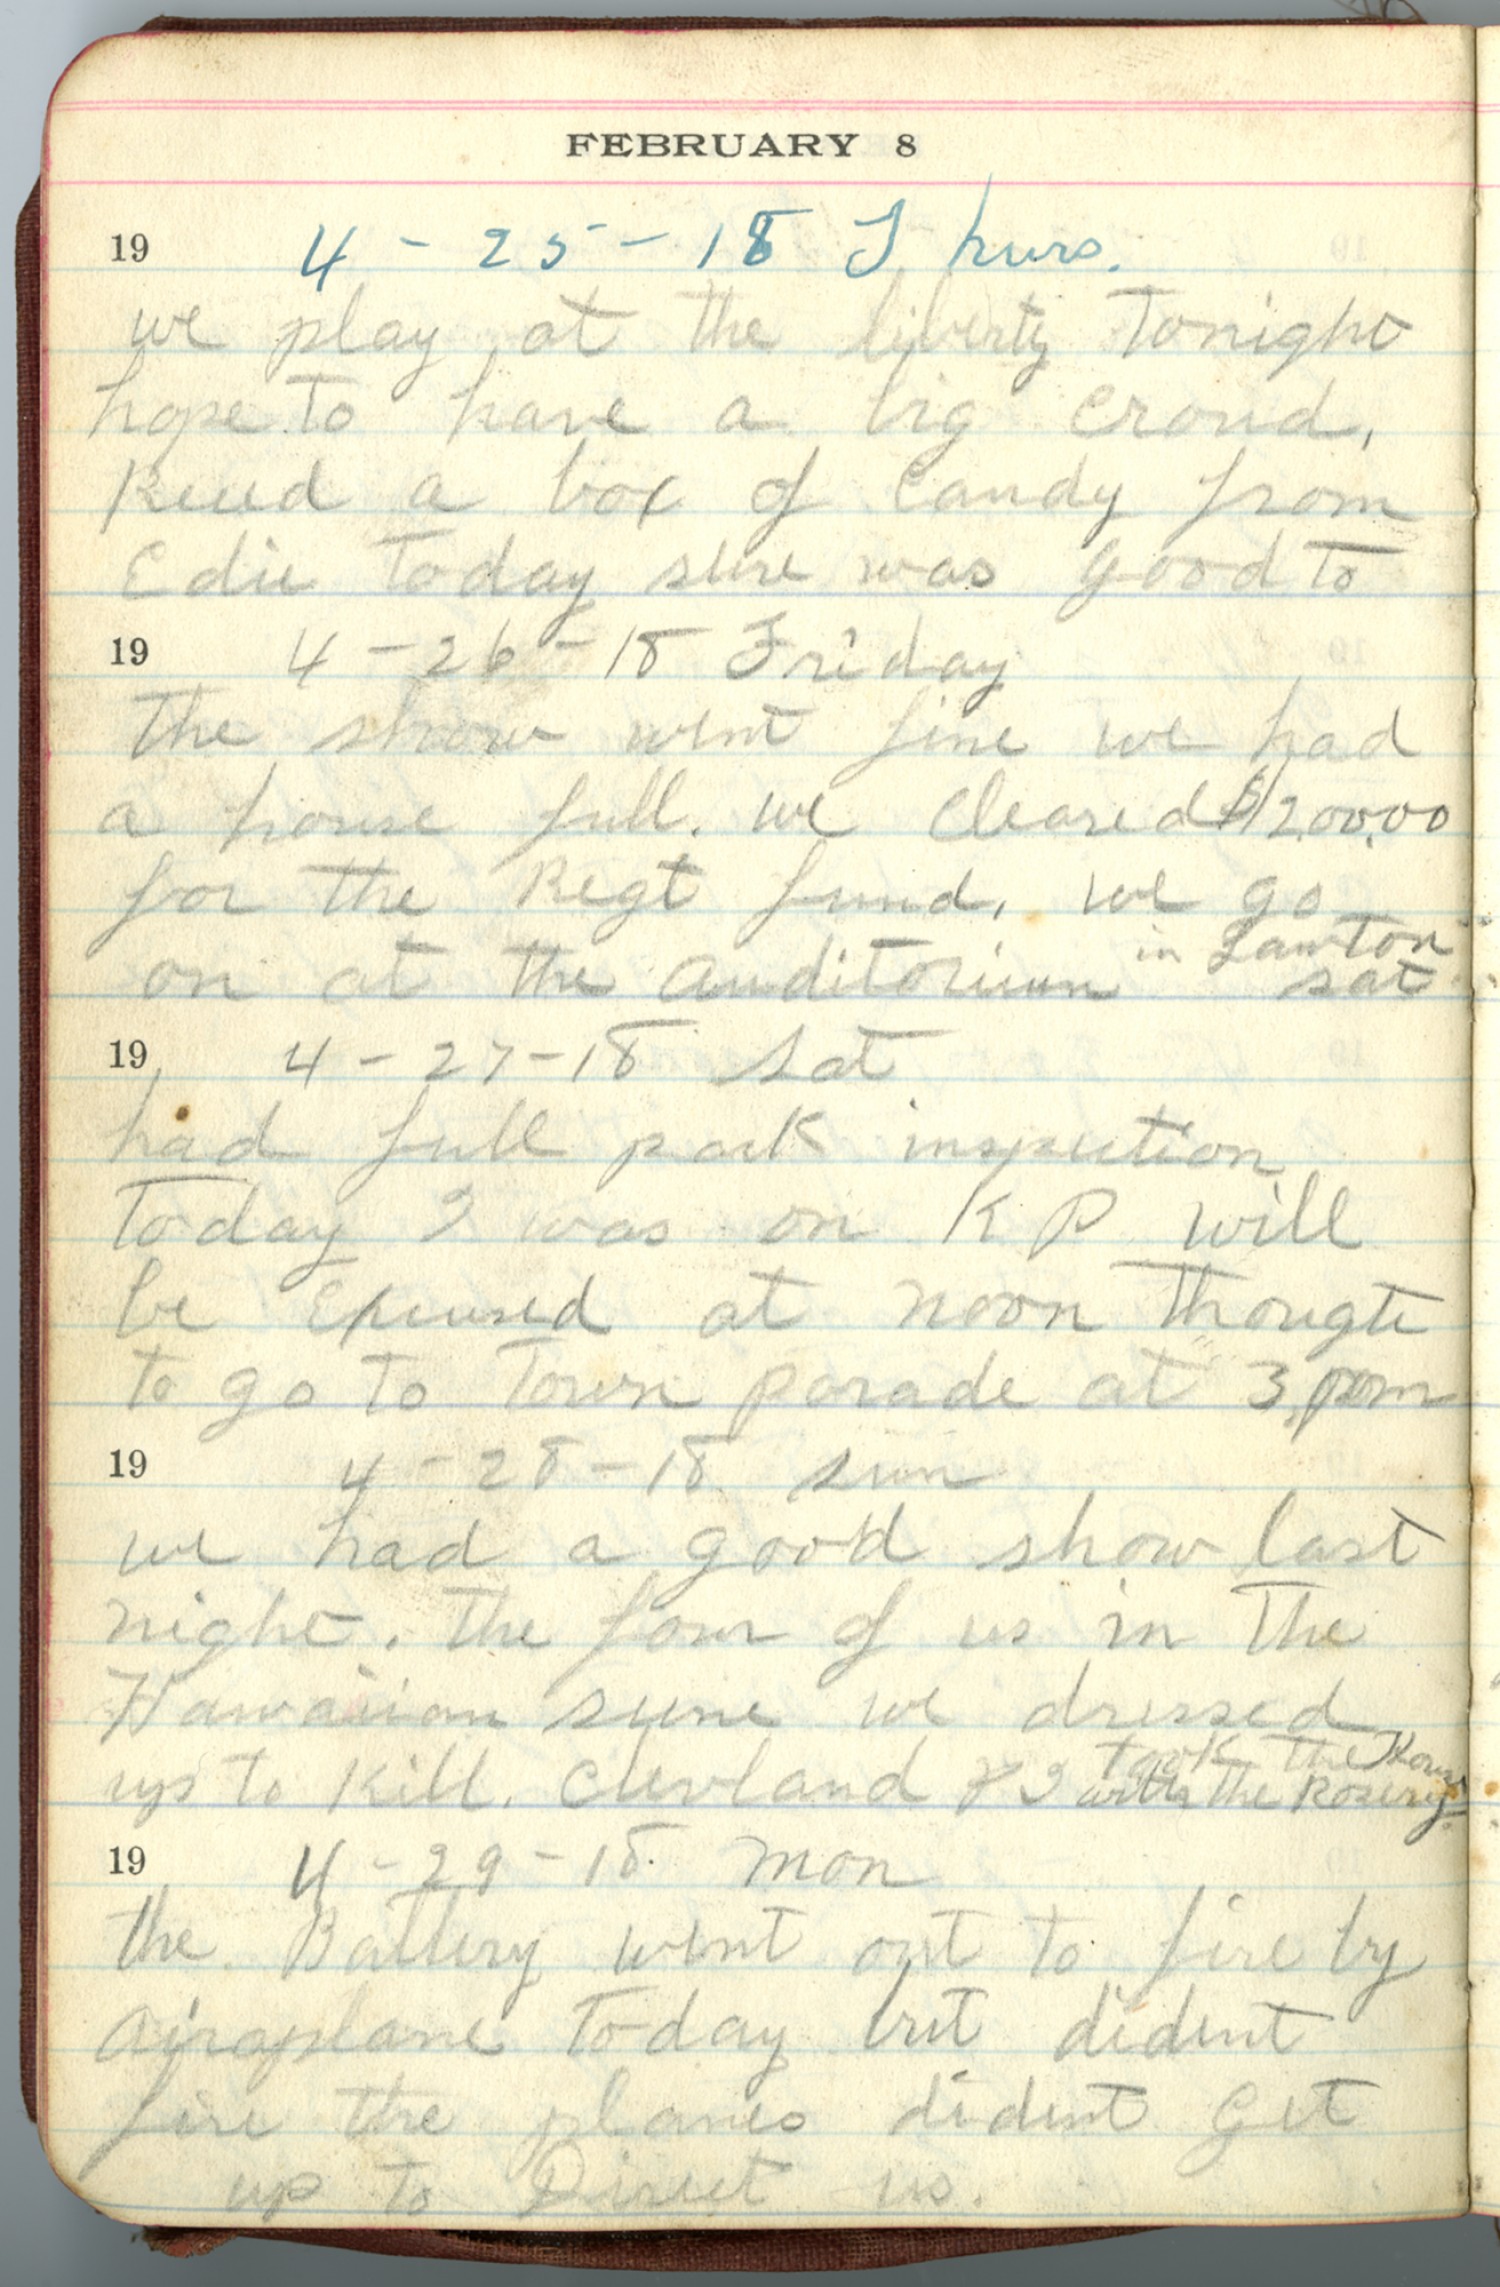 FEBRUARY 8
19 4-25-18 Thurs.
we play at the liberty Tonight
hope to have a big croud,
Recd a box of candy from
Edie today sure was good to
19 4-26-18 Friday
The show went fine we had
a house full. we cleared $1200.00
for the Regt fund. we go
on at the auditorium in Lawton
sat
19 4-27-18 Sat
had full pack inspection
Today I was on K P will
be Excused at noon Thought
to go to Town parade at 3 pm
19 4-28-18 sun
we had a good show last
night. the four of us in The
Hawaiian sune we dressed
up to kill. Clevland & I took the
with the Rosery
19 4-29-18 mon
the Battery went out to fire by
airaplane today but dident
fire the planes dident Get
up to Direct us.